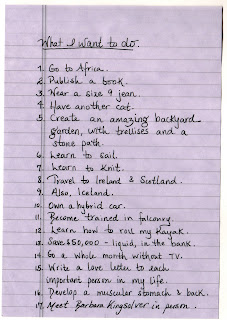 What I want to do.
1. Go to Africa.
2. Publish a book.
3. Wear a size 9 jean.
4. Have another cat.
5. Create an amazing backyard
garden, with trellises and a
stone path.
6. Learn to sail.
7. Learn to Knit.
8. Travel to Ireland & Scotland.
9. Also, Iceland.
10. Own a hybrid car.
11. Become trained in falconry.
12. Learn how to roll my Kayak.
13. Save $50,000 - liquid, in the bank.
14. Go a whole month without TV.
15. Write a love letter to each
important person in my life.
16. Develop a muscular stomach & back.
17. Meet Barbara Kingsolver in person.